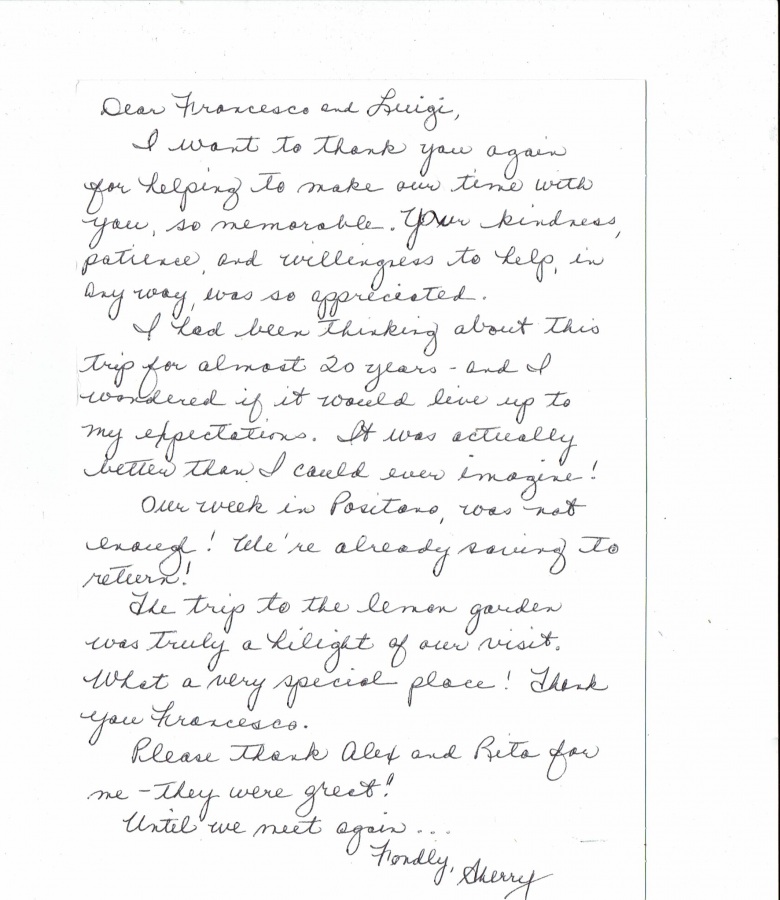 Dear Francesco and Luigi,
I want to thank you again
for helping to make our time with
you, so memorable. Your kindness,
patience, and willingness to help, in
any way, was so appreciated.
I had been thinking about this
trip for almost 20 years - and I
wondered if it would live up to
my expectations. It was actually
better than I could ever imagine!
Our week in Positano, was not
enough! We're already saving to
return!
The trip to the lemon garden
was truly a hilight of our visit.
What a very special place! Thank
you Francesco.
Please thank Alex and Rita for
me - they were great!
Until we meet again...
Fondly, Sherry